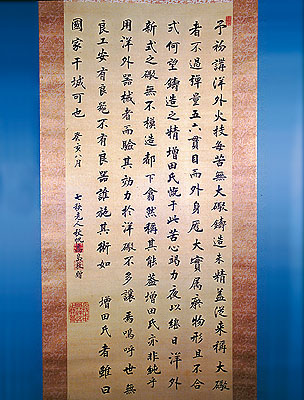 予初講洋外火技每苦無大礮鑄造未精蓋從来稱大礮
者不過彈量五六貫目而外身厖大實屬癈物形且不合
式何望鑄造之精增田氏慨于此苦心竭力夜以継日洋外
新式之礮無不模造都下翕然稱其能蓋增田氏亦非純乎
用洋外器械者而驗其功力於洋礮不多讓焉嗚呼世無
良工安有良器不有良器誰施其術如 增田氏者雖曰
國家干城可也 癸亥八月
七秩老人秋帆